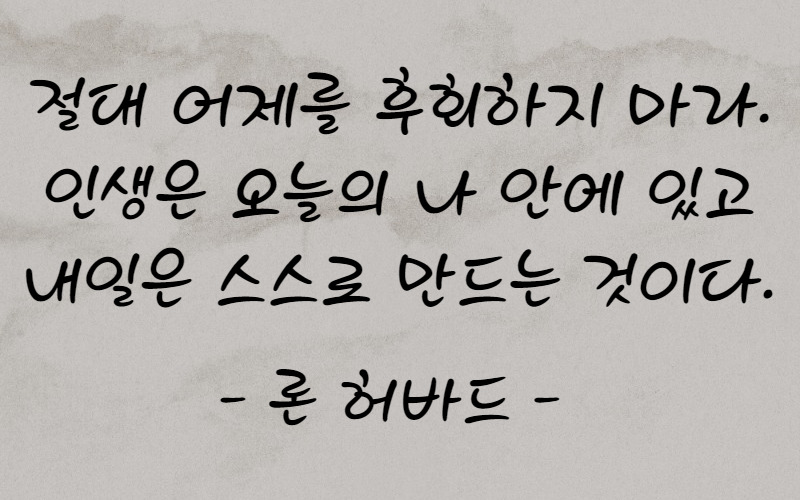 절대 어제를 후회하지 마라.
인생은 오늘의 나 안에 있고
내일은 스스로 만드는 것이다.
- 론 허바드 -